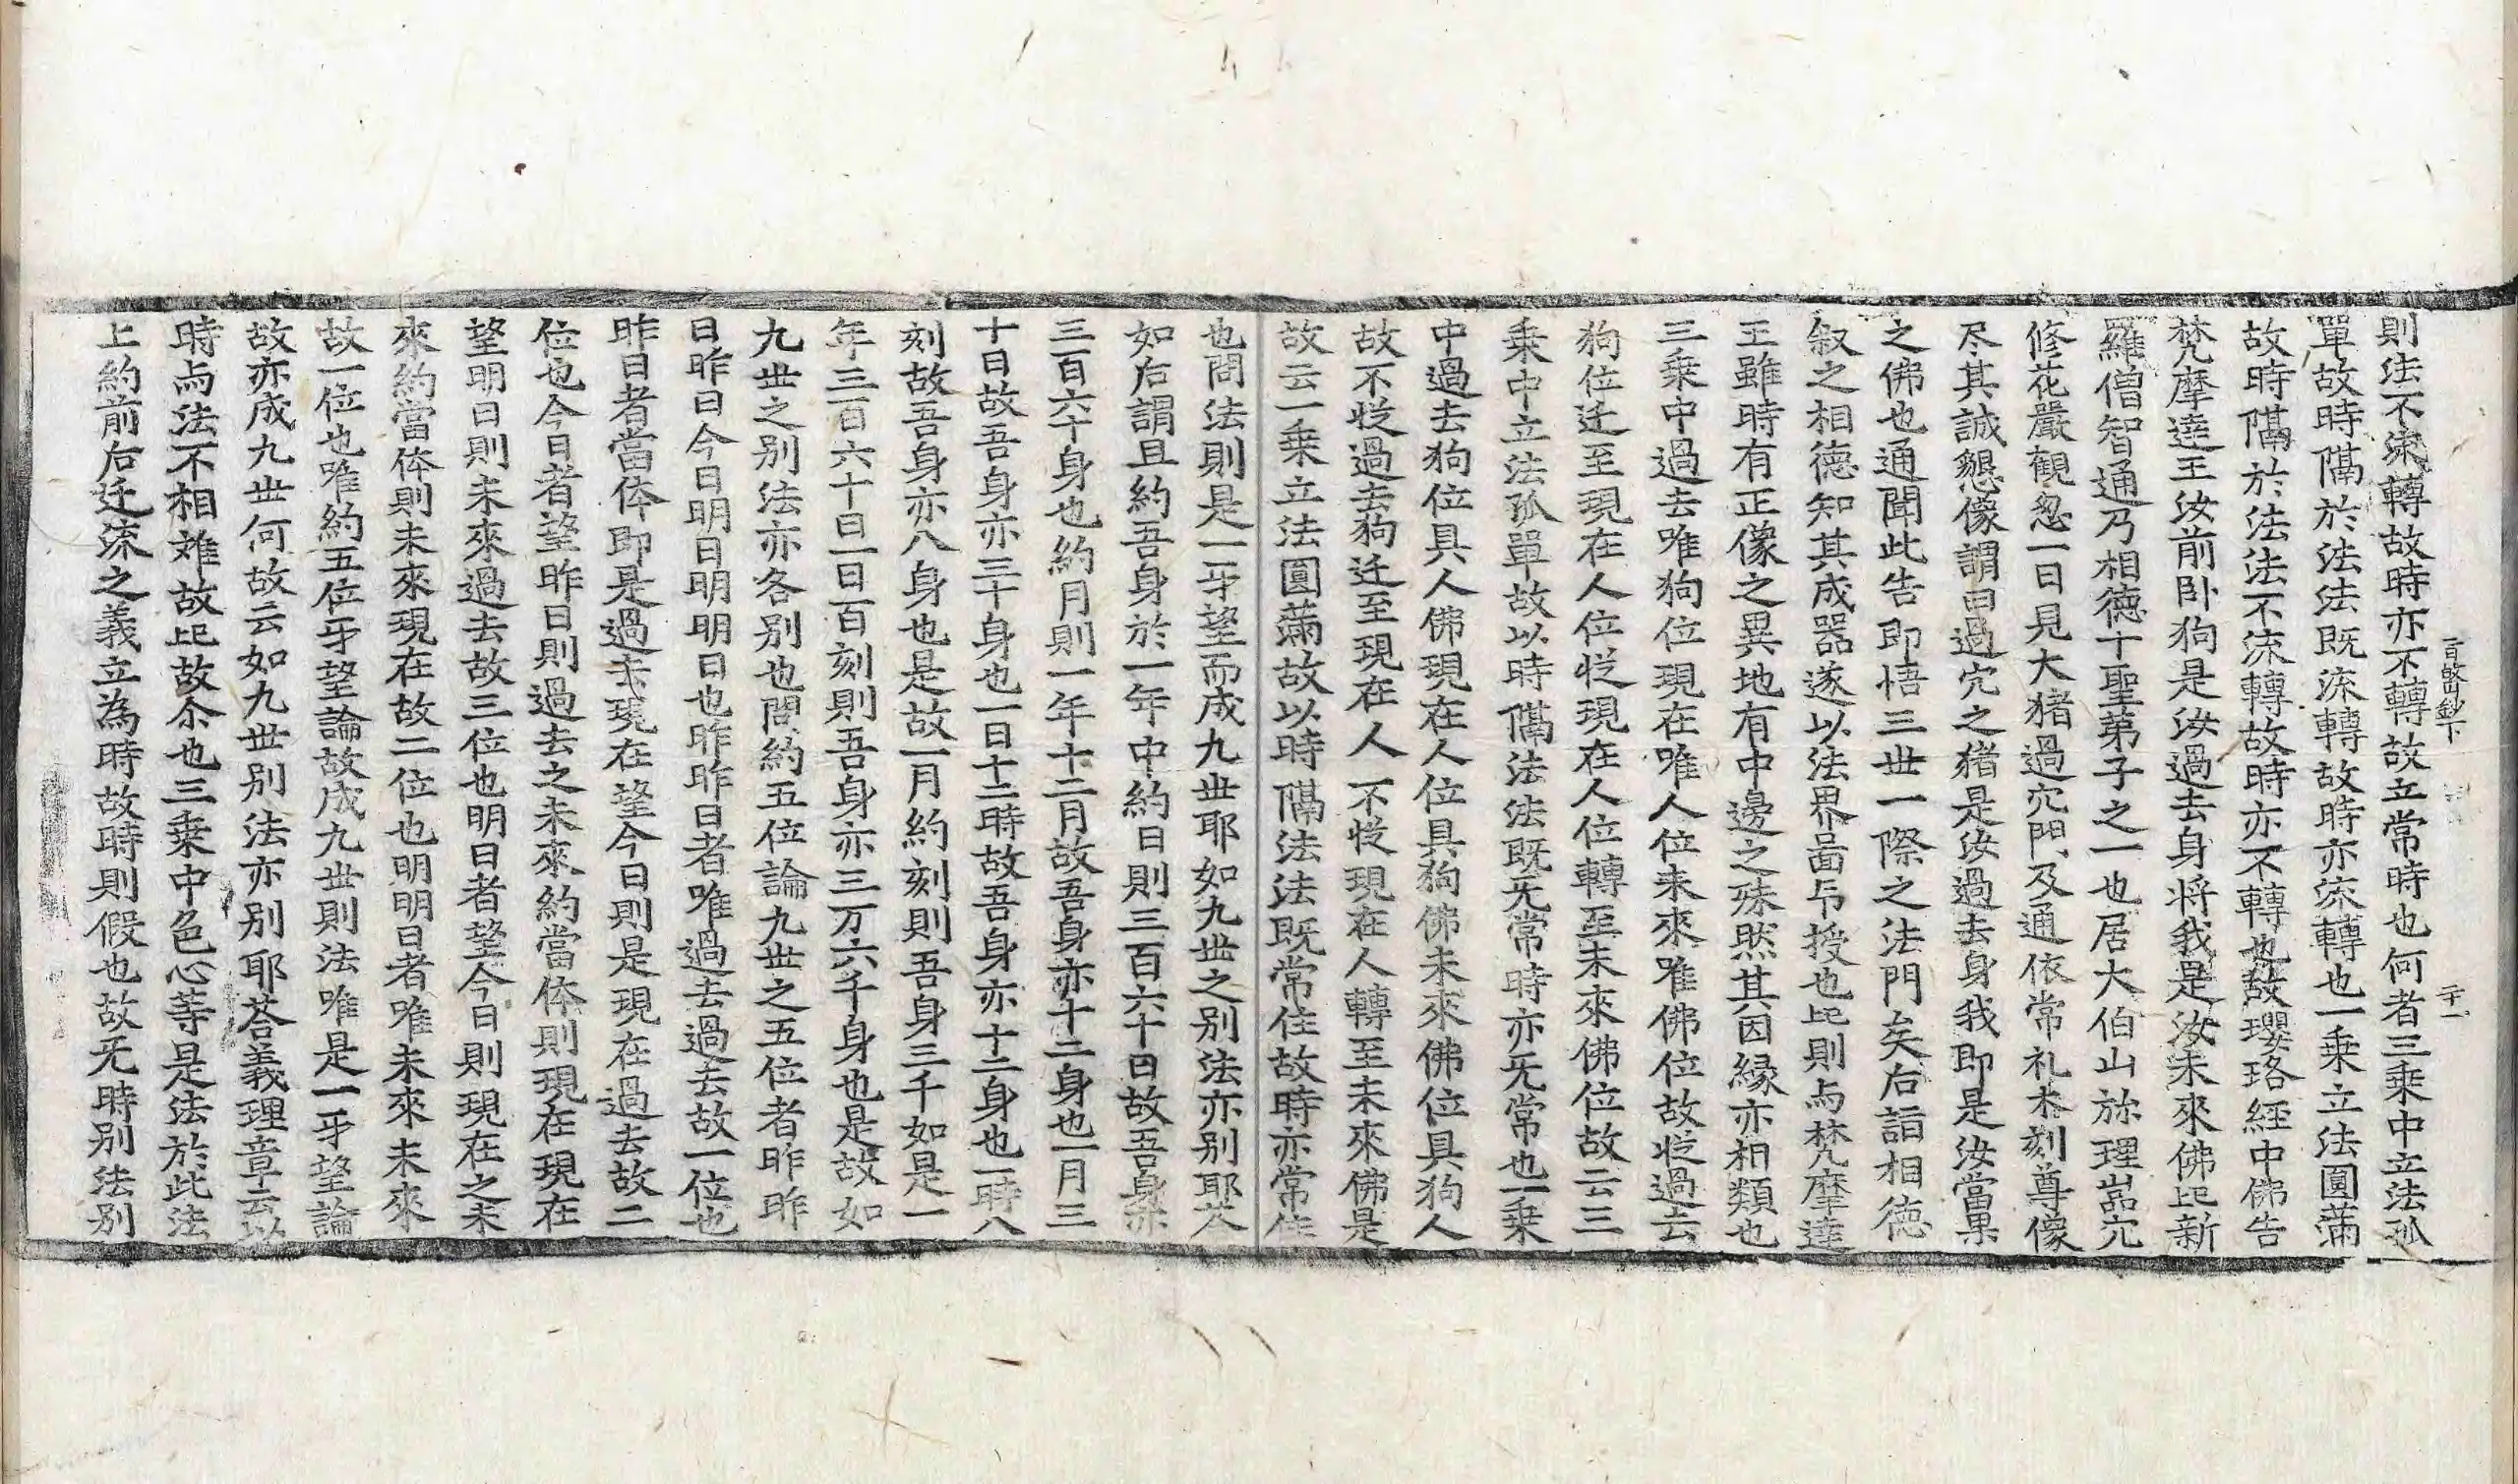 旨歸鈔下
二十一
則法不流轉故時亦不轉故立常時也何者三乘中立法孤
單故時隔於法法既流轉故時亦流轉也一乘立法圓滿
故時隔於法法不流轉故時亦不轉也故瓔珞經中佛告
梵摩達王汝前卧狗是汝過去身將我是汝未來佛此新
羅僧智通乃相德十聖弟子之一也居大伯山旀理嵓穴
修花嚴觀忽一日見大猪過穴門及通依常礼木刻尊像
尽其誠懇像謂曰過穴之猪是汝過去身我即是汝當果
之佛也通聞此告即悟三世一際之法門矣后詣相德
叙之相德知其成器遂以法界啚印授也此則与梵摩達
王雖時有正像之異地有中邊之殊然其因縁亦相類也
三乘中過去唯狗位現在唯人位未來唯佛位故從過去
狗位迁至現在人位從現在人位轉至未來佛位故云三
乘中立法孤單故以時隔法法既旡常時亦旡常也一乘
中過去狗位具人佛現在人位具狗佛未來佛位具狗人
故不從過去狗迁至現在人不從現在人轉至未來佛是
故云一乘立法圓滿故以時隔法法既常住故時亦常住
也問法則是一互望而成九世耶如九世之别法亦别耶答
如后謂且約吾身於一年中約日則三百六十日故吾身亦
三百六十身也約月則一年十二月故吾身亦十二身也一月三
十日故吾身亦三十身也一日十二時故吾身亦十二身也一時八
刻故吾身亦八身也是故一月約刻則吾身三千如是一
年三百六十日一日百刻則吾身亦三万六千身也是故如
九世之别法亦各别也問約五位論九世之五位者昨昨
日昨日今日明日明明日也昨昨日者唯過去過去故一位也
昨日者當体即是過去現在望今日則是現在過去故二
位也今日者望昨日則過去之未來約當体則現在現在
望明日則未來過去故三位也明日者望今日則現在之未
來約當体則未來現在故二位也明明日者唯未來未來
故一位也唯約五位互望論故成九世則法唯是一互望論
故亦成九世何故云如九世别法亦别耶荅義理章云以
時与法不相離故此故尒也三乘中色心等是法於此法
上約前后迁流之義立為時故時則假也故旡時别法别